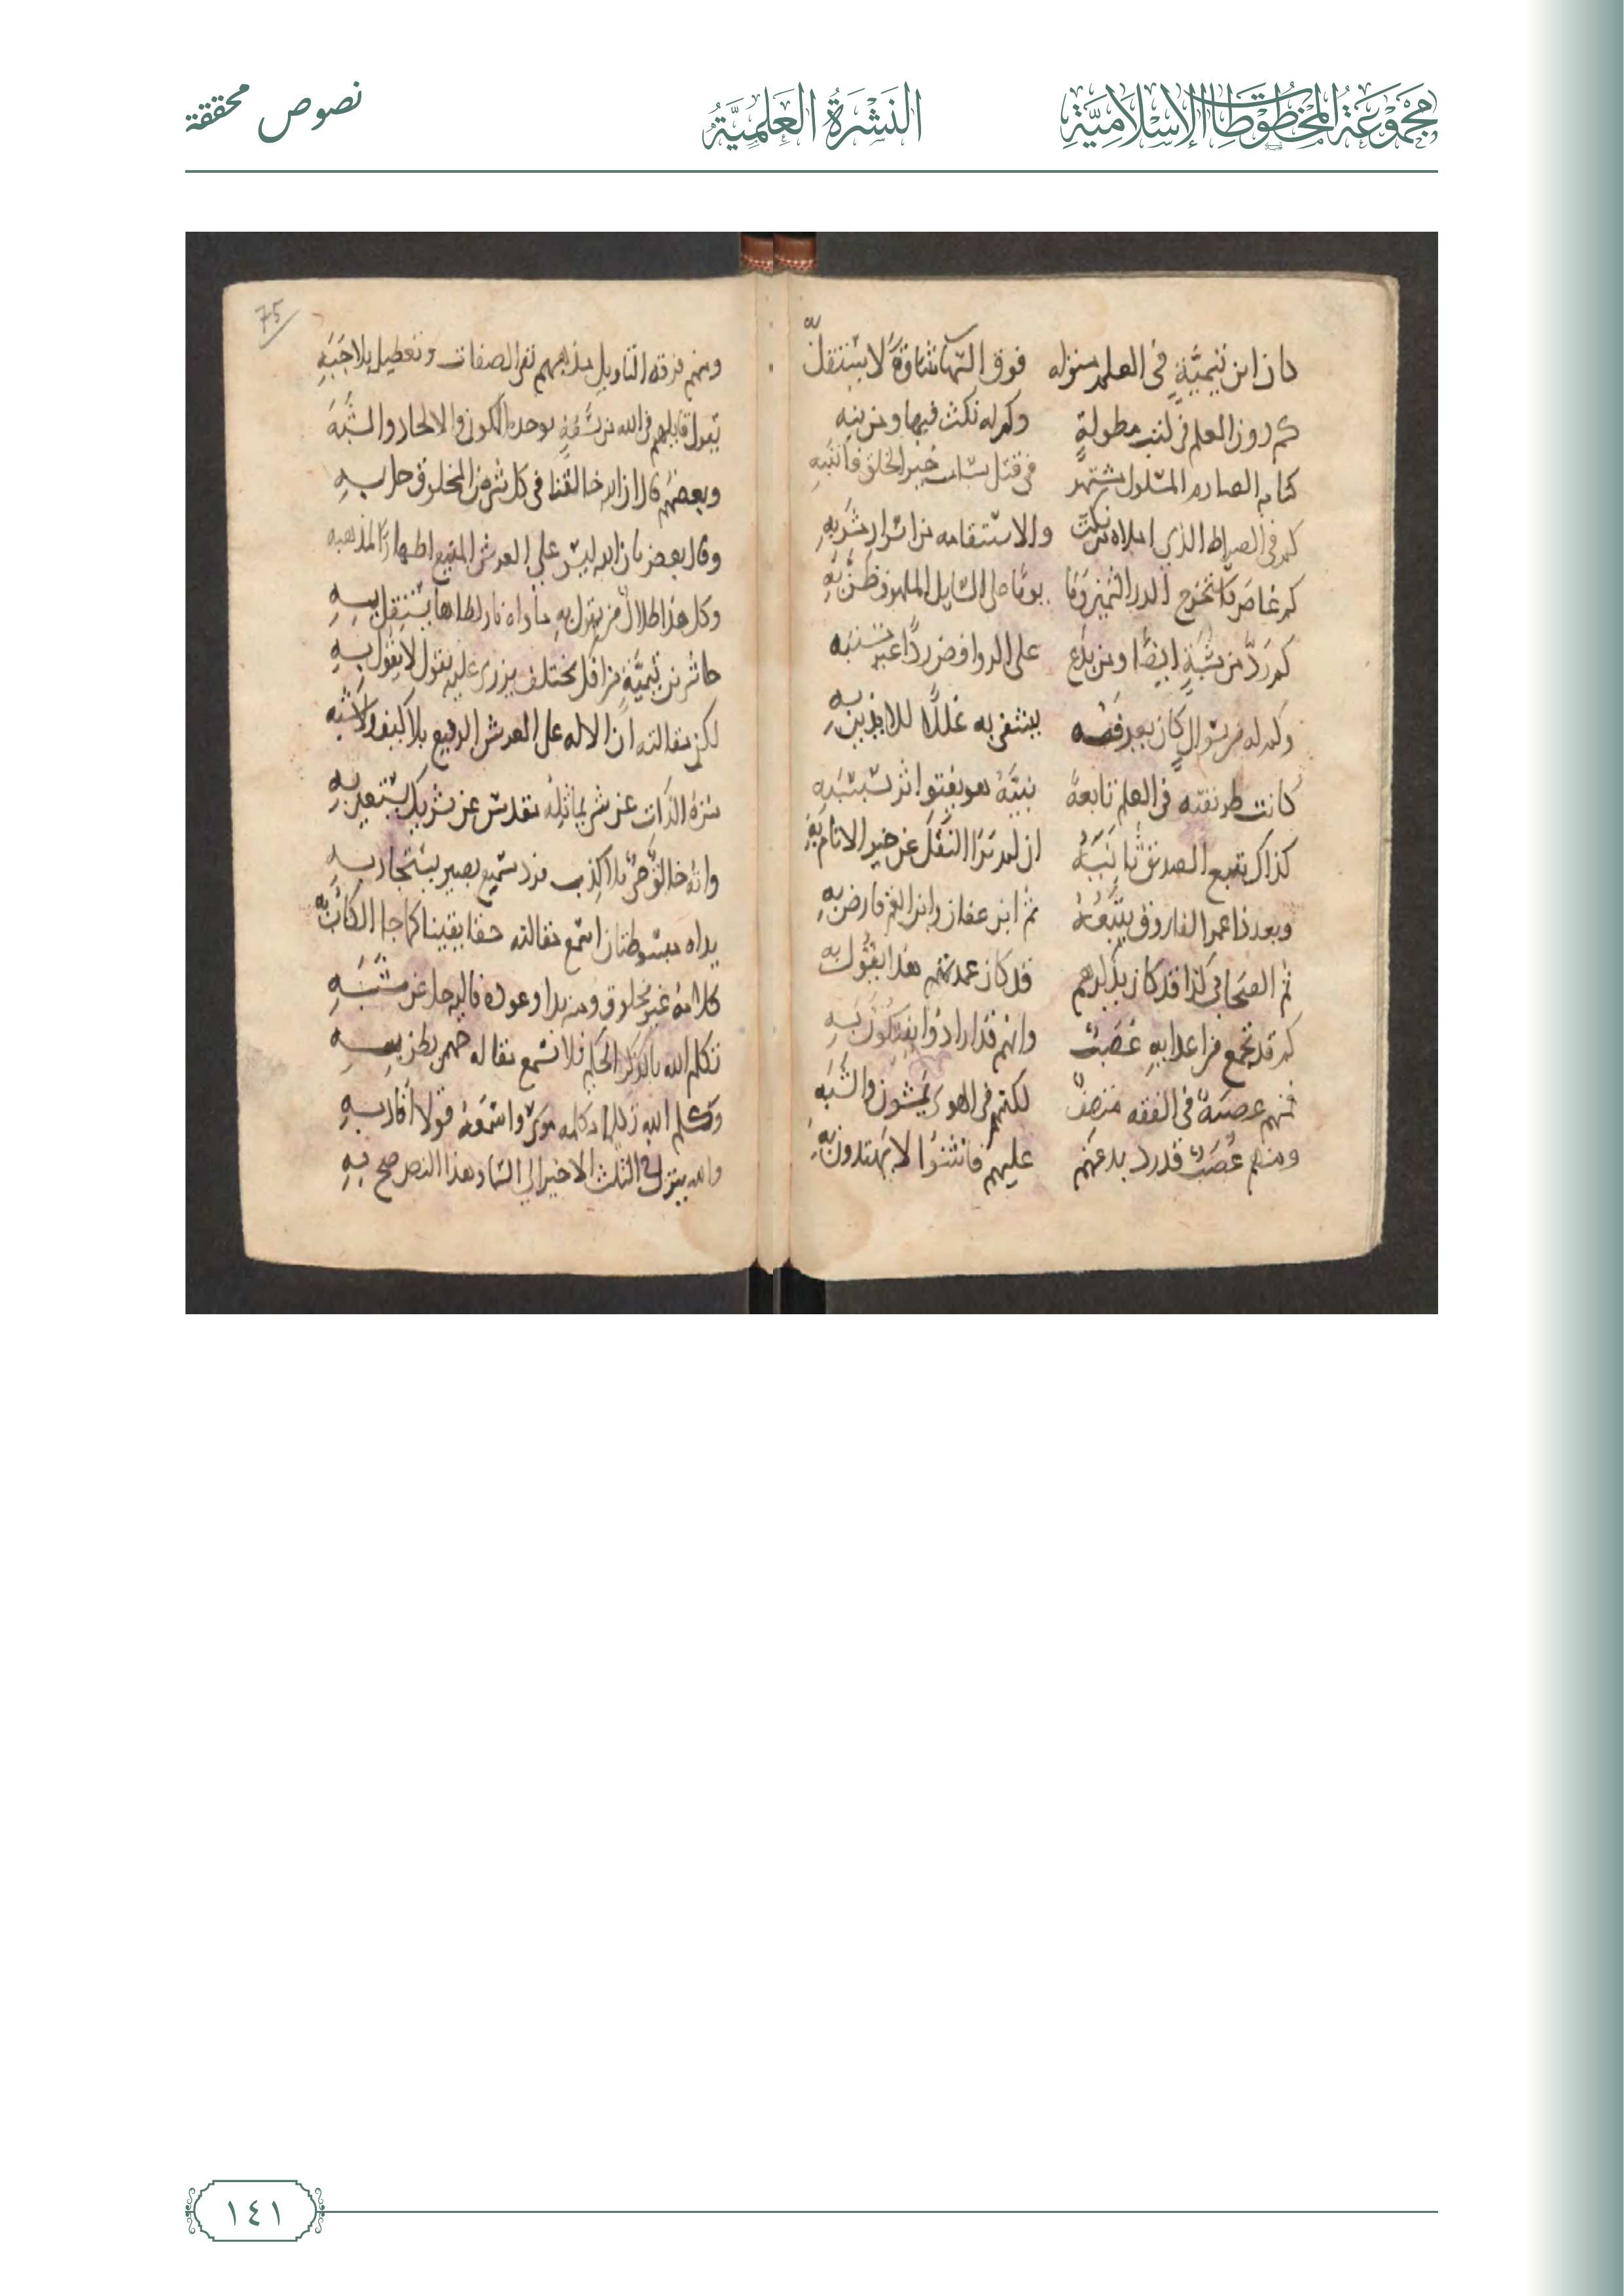 مجموعة المخطوطات الإسلامية
النشرة العلمية
نصوص محققة
كان ابن تيمية في العلم منزله فوق السها شاوه لا يستقل به
كم روز العلم في كتب مطولة وكم له نكت فيها ومن نبه
كتابه الصارم المسلول مشتهر في قتل ساب خير الخلق فانتبه
كم في الصراط الذي املاه من نكت والاستقامه من اسرار مشربه
كم غاص فاستخرج الدر الثمين وما يوما على السايل الملهوف ظن به
كم رد من شبه ايضا ومن بدع على الروافض ردا غير مشتبه
وكم له من سوال كان يعرفه يشفي به غللا للايذين به
كانت طريقته في العلم تابعة نبيه هو يقفوا اثر سبسبه
كذاك يتبع الصديق ثانيه ان لم ير النقل عن خير الانام به
وبعد ذا عمر الفاروق يتبعه ثم ابن عفان وابن العم فارض به
ثم الصحابي كذا قد كان يذكرهم قد كان عمدتهم هذا يقول به
كم قد تجمع من اعدايه عصب وانهم قد ارادوا يفتكون به
فمنهم عصبة في الفقه منصف لكنهم في الهوى يمشون والشبه
ومنهم عصب قد رد بدعتهم عليهم فانثنوا لا يهتدون به
75
ومنهم فرقة التاويل مذهبهم نفي الصفات وتعطيل بلا جبه
يقول قايلهم في الله من سفه بوحدة الكون والالحاد والشبه
وبعضهم قال ان الله خالقنا في كل شيء من المخلوق حل به
وقال بعض بان الله ليس على العرش المنيع اظهارا لمذهبه
وكل هذا ضلال من يقول به ماواه نار لظاها يستقل به
حاشى بن تيمية من افك مختلف يزري عليه بقول لا يقول به
لكن مقالته ان الاله على العرش الرفيع بلا كيف ولا شبه
منزه الذات عن شي يماثله تقدس عن شريك يستعين به
وانه خالق حي بلا كذب فرد سميع بصير يستجار به
يداه مبسوطتان اسمع مقالته حقا يقينا كما جا الكتاب به
كلامه غير مخلوق ومنه بدا وعوده فاليه جل عن شبه
تكلم الله بالذكر الحكيم فلا تسمع مقاله جهمي يظن به
وكلم الله تكليما وكلمه موسى واسمعه قولا افاد به
والله ينزل في الثلث الاخير الى السما وهذا النص صح به
١٤١